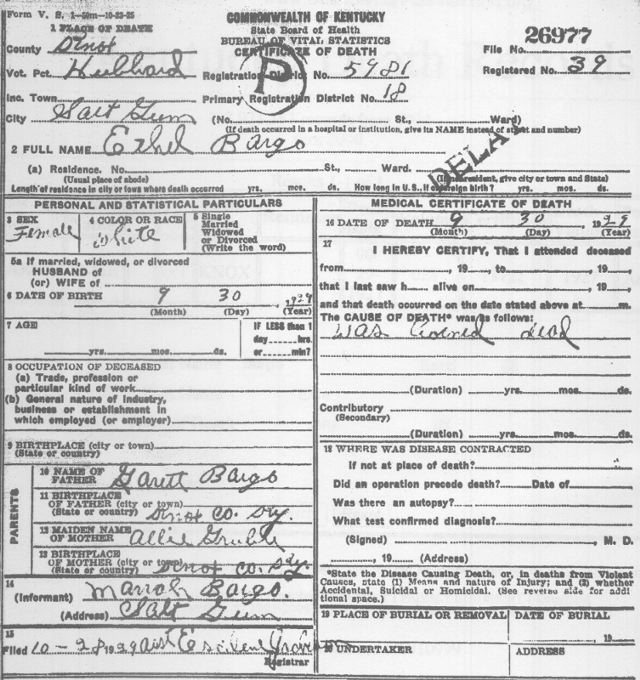 Form V. S. 1-50m-10-23-25
COMMONWEALTH OF KENTUCKY
State Board of Health
BUREAU OF VITAL STATISTICS
CERTIFICATE OF DEATH
1 PLACE OF DEATH
County
Vot. Pct. Hubbard
Inc. Town
City Salt Gum
File No. 26977
Registered No. 39
Registration District No. 5981
Primary Registration District No. 18
P
(No. St., Ward)
(If death occurred in a hospital or institution, give its NAME instead of street and number)
2 FULL NAME Ethel Bargo
DELA
(a) Residence. No. St., Ward.
(Usual place of abode) (If nonresident, give city or town and State)
Length of residence in city or town where death occurred yrs. mos. ds. How long in U. S., if of foreign birth? yrs. mos. ds.
PERSONAL AND STATISTICAL PARTICULARS
3 SEX
Female
4 COLOR OR RACE
white
5 Single
Married
Widowed
or Divorced
(Write the word)
5a If married, widowed, or divorced
HUSBAND of
(or) WIFE of
6 DATE OF BIRTH 9 30 1929
(Month) (Day) (Year)
7 AGE
yrs. mos. ds.
IF LESS than 1
day hrs.
or min?
8 OCCUPATION OF DECEASED
(a) Trade, profession or
particular kind of work
(b) General nature of industry,
business or establishment in
which employed (or employer)
9 BIRTHPLACE (city or town)
(State or country)
PARENTS
10 NAME OF
FATHER Garett Bargo
11 BIRTHPLACE
OF FATHER (city or town)
(State or country) Co. Ky.
12 MAIDEN NAME
OF MOTHER Allie
13 BIRTHPLACE
OF MOTHER (city or town)
(State or country) Co. Ky.
14
(Informant) Bargo.
(Address) Salt Gum
15
Filed 10-28 1929
Registrar
MEDICAL CERTIFICATE OF DEATH
16 DATE OF DEATH 9 30 1929
(Month) (Day) (Year)
17
I HEREBY CERTIFY, That I attended deceased
from , 19 to , 19
that I last saw h alive on , 19
and that death occurred on the date stated above at m.
The CAUSE OF DEATH* was as follows:
Was borned dead
(Duration) yrs. mos. ds.
Contributory
(Secondary)
(Duration) yrs. mos. ds.
18 WHERE WAS DISEASE CONTRACTED
If not at place of death?
Did an operation precede death? Date of
Was there an autopsy?
What test confirmed diagnosis?
(Signed) M. D.
, 19 (Address)
*State the Disease Causing Death, or, in deaths from Violent
Causes, state (1) Means and nature of Injury; and (2) whether
Accidental, Suicidal or Homicidal. (See reverse side for addi
tional space.)
19 PLACE OF BURIAL OR REMOVAL
DATE OF BURIAL
19
20 UNDERTAKER
ADDRESS